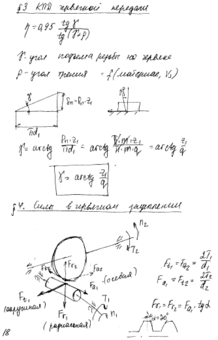 §3 КПД червячной передачи
η=0,95 tgγ/tg(γ+ρ)
γ-угол подъема резьбы на червяке
ρ-угол трения = f(материал, Vs)
γ
πd₁
γ = arctg Pn·z₁/πd₁ = arctg π·m·z₁/π·m·q = arctg z₁/q
γ = arctg z₁/q
§4. Силы в червячном зацеплении
n₂
T₂
(осевая)
Ft₁
(окружная)
Fr₁
(радиальная)
T₁
n₁
Ft₁=Fa₂= 2T₁/d₁
Fa₁=Ft₂= 2T₂/d₂
Fr₁=Fr₂=Fa₁·tgα
18